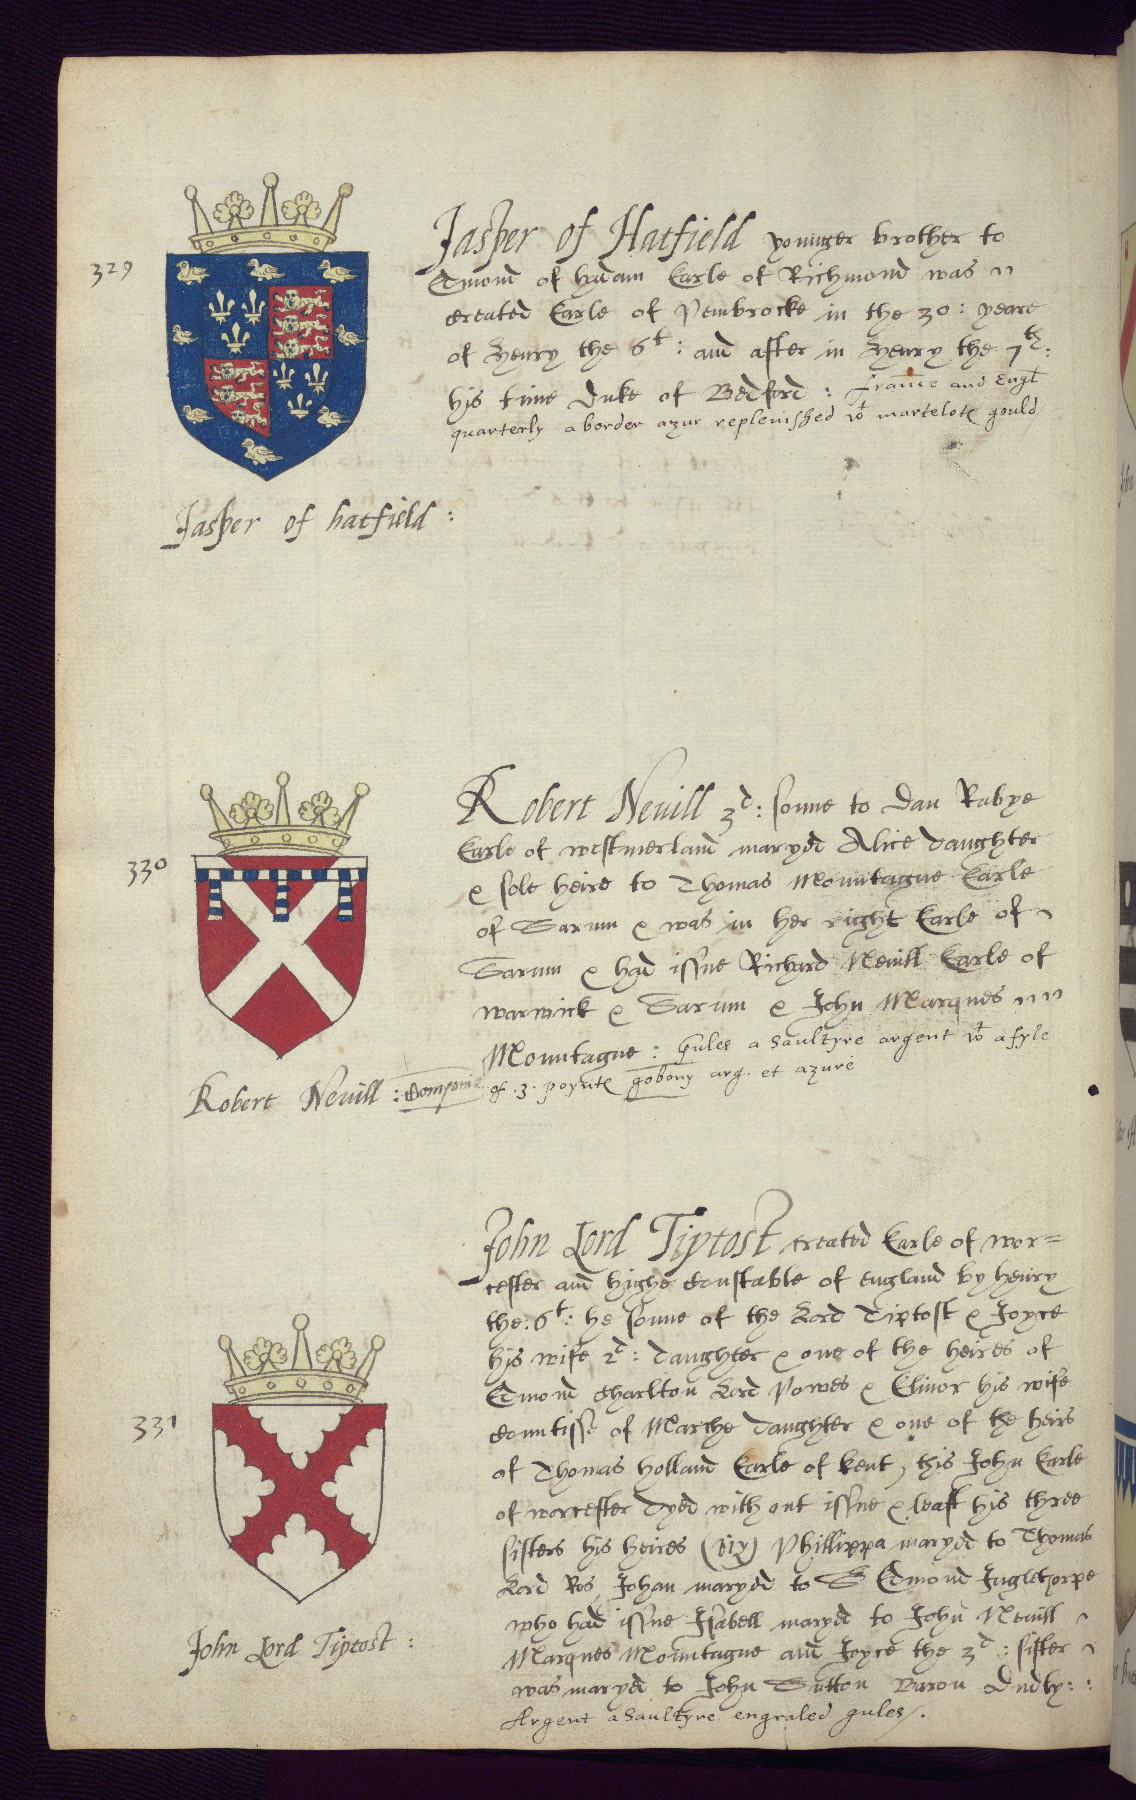 329
Jasper of Hatfield yonuger brother to
Edmond of hadam Earle of Richmond was
created Earle of Pembrocke in the 30: yeare
of Henry the 6t: and after in Henry the 7th:
his time Duke of Bedford: france and Engl
quarterly a border azur replenished wt martelote gould
Jasper of hatfield:
330
Robert Nevill 3d: sonne to Dan Rabye
Earle of westmerland maryed Alice daughter
& sole heire to Thomas Mountague Earle
of Sarum & was in her right Earle of
Sarum & had issue Richard Nevill Earle of
warwick & Sarum & John Marques
Mountague: Gules a Saultyre argent wt a fyle
of .3. poynte gobony arg. et azure
Robert Nevill: Componie
331
John Lord Tiptost created Earle of wor=
cester and highe Constable of england by henry
the .6t: he sonne of the Lord Tiptost & Joyce
his wife 2d: daughter & one of the heires of
Edmond Charlton Lord Powes & Elinor his wife
Countisse of Marche daughter & one of the heirs
of Thomas holland Earle of kent, this John Earle
of worcester dyed with out issue & least his three
sisters his heires (viz) Phillippa maryed to Thomas
Lord Ros, Johan maryed to S Edmond Inglethorpe
who had issue Isabell maryed to John Nevill
Marques Mountague and Joyce the 3d: sister
was maryed to John Sutton Baron dudly:
Argent a Saultyre engraled gules/.
John Lord Tiptost: